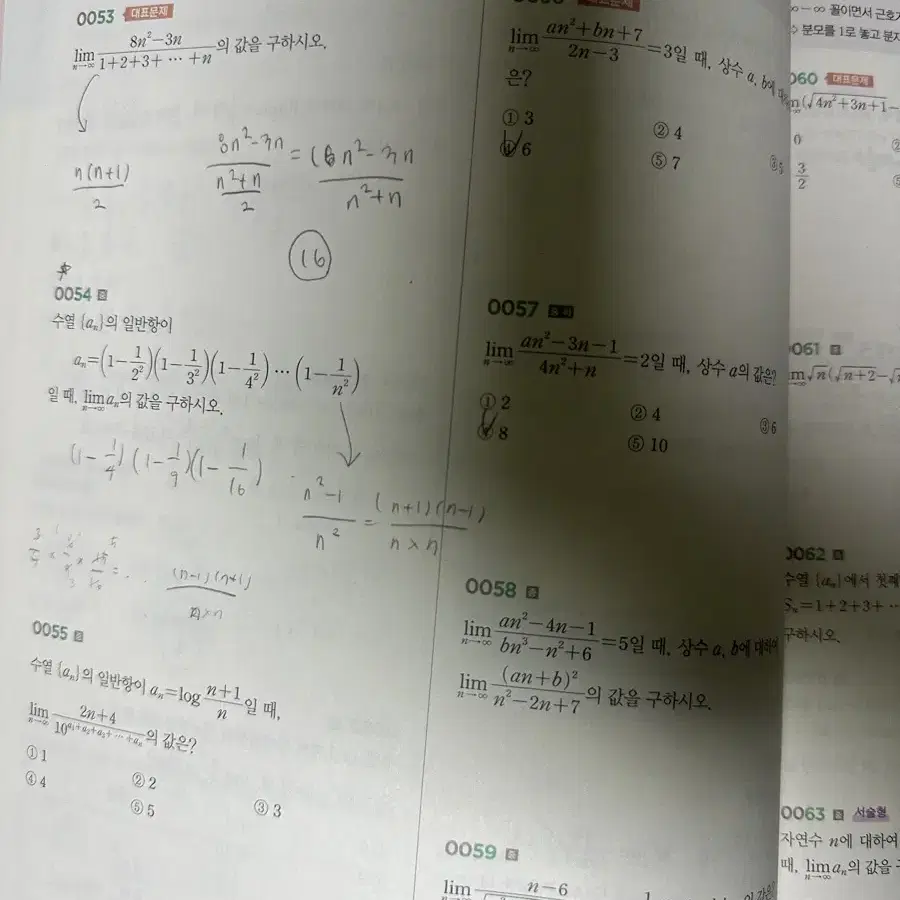 0053 대표문제
lim n→∞ 8n²−3n / 1+2+3+ ⋯ +n 의 값을 구하시오.
n(n+1) / 2
8n²−3n / (n²+n / 2) = 16n²−3n / n²+n
16
0054 중
수열 {aₙ}의 일반항이
aₙ=(1−1/2²)(1−1/3²)(1−1/4²)⋯(1−1/n²)
일 때, lim n→∞ aₙ의 값을 구하시오.
(1−1/4)(1−1/9)(1−1/16)
n²−1 / n² = (n+1)(n−1) / n×n
(n−1)(n+1) / n×n
0055 중
수열 {aₙ}의 일반항이 aₙ=log n+1 / n 일 때,
lim n→∞ 2n+4 / 10^(a₁+a₂+a₃+⋯+aₙ) 의 값은?
① 1
② 2
③ 3
④ 4
⑤ 5
대표문제
lim n→∞ an²+bn+7 / 2n−3 =3일 때, 상수 a, b에
은?
① 3
② 4
③ 5
④ 6
⑤ 7
0057
lim n→∞ an²−3n−1 / 4n²+n =2일 때, 상수 a의 값은?
① 2
② 4
③ 6
④ 8
⑤ 10
0058 중
lim n→∞ an²−4n−1 / bn³−n²+6 =5일 때, 상수 a, b에 대하여
lim n→∞ (an+b)² / n²−2n+7 의 값을 구하시오.
0059 중
lim n−6
∞−∞ 꼴이면서 근호가
⇨ 분모를 1로 놓고 분자
060 대표문제
(√4n²+3n+1−
0
3/2
061 중
√n(√n+2−√
0062 중
수열 {aₙ}에서 첫째
Sₙ=1+2+3+⋯
구하시오.
0063 중 서술형
자연수 n에 대하여
때, lim n→∞ aₙ의 값을